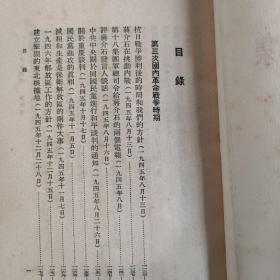 目錄
第三次國內革命戰爭時期
抗日戰爭勝利後的時局和我們的方針（一九四五年八月十三日）
蔣介石在挑動內戰（一九四五年八月十三日）
第十八集團軍總司令給蔣介石的兩個電報（一九四五年八月）
評蔣介石發言人談話（一九四五年八月十六日）
中共中央關於同國民黨進行和平談判的通知（一九四五年八月二十六日）
關於重慶談判（一九四五年十月十七日）
國民黨進攻的眞相（一九四五年十一月五日）
減租和生產是保衛解放區的兩件大事（一九四五年十一月七日）
一九四六年解放區工作的方針（一九四五年十二月十五日）
建立鞏固的東北根據地（一九四五年十二月二十八日）
目錄
一